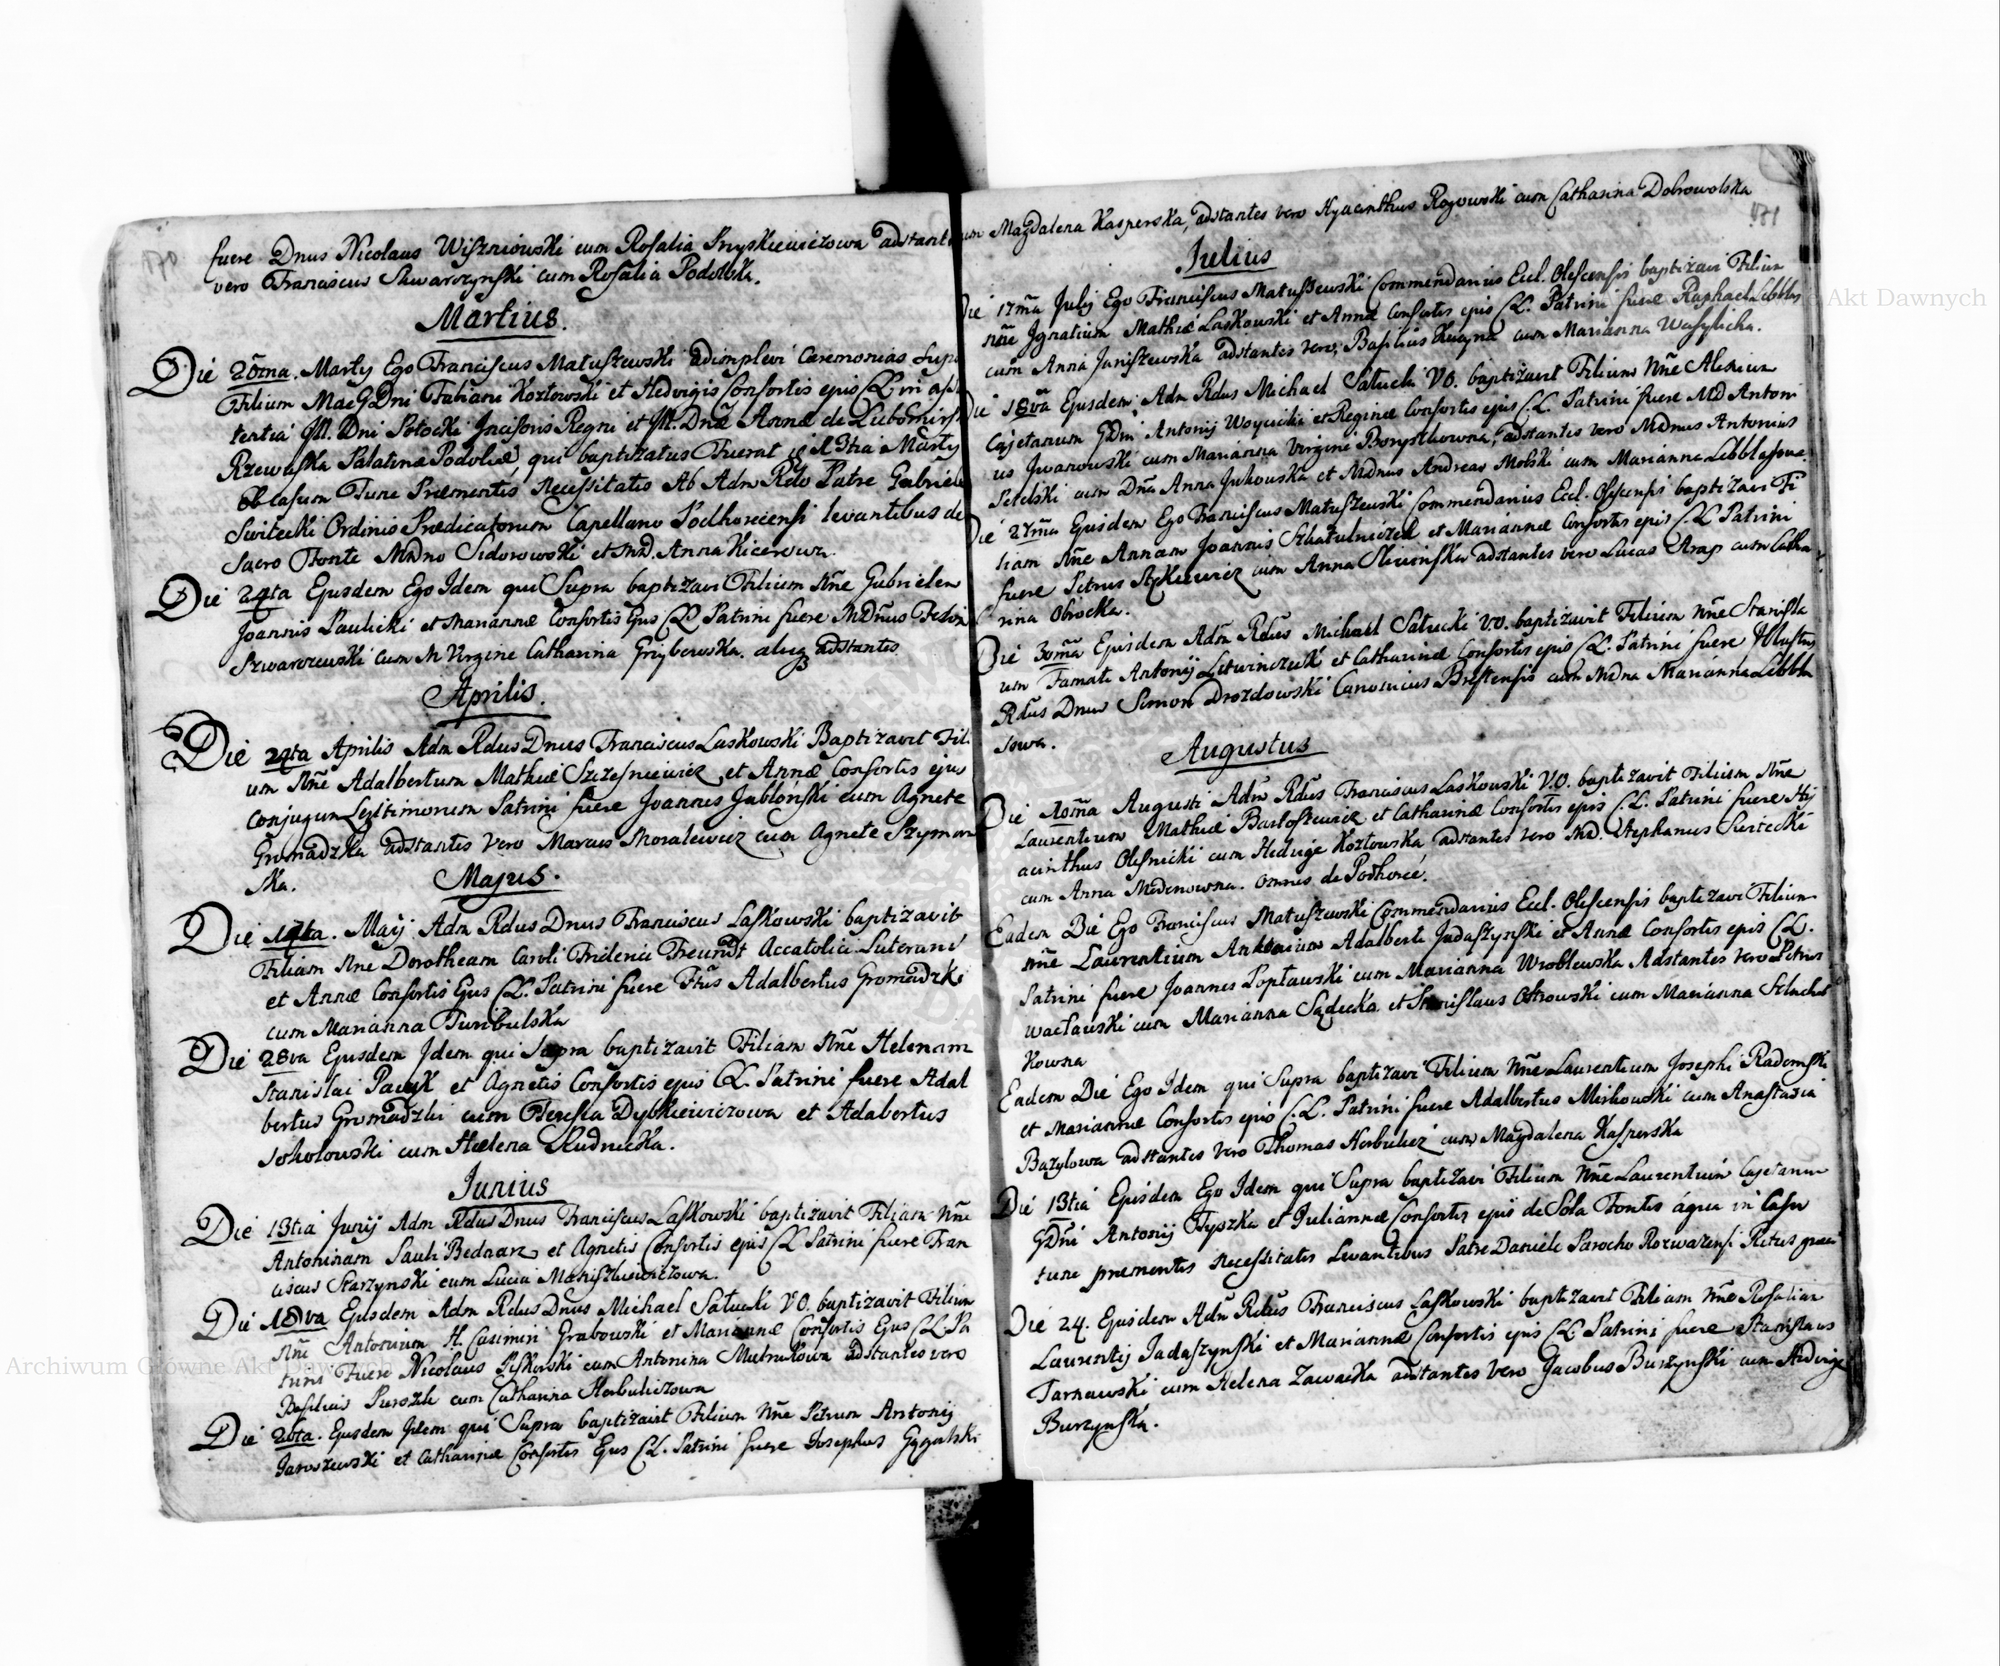 170
fuere Dnus Nicolaus Wiszniowski cum Rosalia adstantes
vero Franciscus Skwarczynski cum Rosalia Podolska.
Martius.
Die 20ma. Martij Ego Franciscus Matuszewski adimplevi Ceremonias Sup
Filium MaeGDni Fabiani Kozłowski et Hedvigis Consortis ejus CL in
tertia Ill. Dni Potocki Incisoris Regni et Ill. Dnæ Annæ de
Rzewuska Palatinæ Podoliæ, qui baptizatus Fuerat 13tia Martij
Ob Casum Tunc Præmentis Necessitatis Ab Adm Rdo Patre Gabriele
Switecki Ordinis Prædicatorum Capellano Podhorecensi levantibus de
Sacro Fonte Mdno Sidorowski et MD. Anna Kicerowa.
Die 24ta Ejusdem Ego Idem qui Supra baptizavi Filium Nñe Gabrielem
Joannis Paulicki et Mariannæ Consortis Ejus CL Patrini fuere MDñus
Szwarczewski cum M Virgine Catharina Grzybowska. adstantes
Aprilis.
Die 24ta Aprilis Adm Rdus Dnus Franciscus Laskowski Baptizavit Fili
um Nñe Adalbertum Mathiæ Szczesniewicz et Annæ Consortis ejus
Conjugum Legitimorum Patrini fuere Joannes Jabłoński cum Agnete
Gromadzka adstantes Vero Marcus Moralewicz cum Agnete Szyman
ska.
Majus.
Die 17ta. Maij Adm Rdus Dnus Franciscus Laskowski baptizavit
Filiam Nñe Dorotheam Caroli Friderici Freundt Accatolici Luterani
et Annæ Consortis Ejus CL. Patrini fuere Adalbertus Gromadzki
cum Marianna Turibulska
Die 28va Ejusdem Idem qui Supra baptizavit Filiam Nñe Helenam
Stanislai et Agnetis Consortis ejus CL. Patrini fuere Adal
bertus Gromadzki cum Theresia Dybkiewiczowa et Adabertus
Sokołowski cum Hælena Rudnicka.
Junius
Die 13tia Junij Adm Rdus Dnus Franciscus Laskowski baptizavit Filiam Nñe
Antoninam Pauli Bednarz et Agnetis Consortis ejus CL Patrini fuere Fran
ciscus Starzynski cum Lucia
Die 18va Ejusdem Adm Rdus Dnus Michael Sałucki VO. baptizavit Filium
Nñe Antonium H. Casimiri Grabowski et Mariannæ Consortis Ejus CL Pa
trini Fuere Nicolaus cum Antonina adstantes vero
Basilius cum Catharina Horbulczowa
Die 26ta. Ejusdem Idem qui Supra baptizavit Filium Nñe Petrum Antonij
Jaroszewski et Catharinæ Consortis Ejus CL. Patrini fuere Josephus
171
cum Magdalena Kasperska, adstantes vero Hyacinthus Rogowski cum Catharina Dobrowolska
Julius
Die 17ma Julij Ego Franciscus Matuszewski Commendarius Eccl. Olescensis baptizavi Filium
nñe Ignatium Mathiæ Laskowski et Annæ Consortis ejus CL. Patrini fuere Raphael
cum Anna Janiszewska adstantes vero, Basilius cum Marianna Wasylicha.
Die 18va Ejusdem Adm Rdus Michael Sałucki VO. baptizavit Filium Nñe Alexium
Cajetanum GDni Antonij Woycicki et Reginæ Consortis ejus CL. Patrini fuere MD Anton
ius Iwanowski cum Marianna Virgine adstantes vero Mdnus Antonius
cum Dña Anna Jukowska et Mdnus Andreas Molski cum Marianna
Die 27ma Ejusdem Ego Franciscus Matuszewski Commendarius Eccl. Olescensis baptizavi Fi
liam Nñe Annam Joannis et Mariannæ Consortis ejus CL Patrini
fuere Petrus cum Anna adstantes vero Lucas Arap cum Catha
rina Obrocka.
Die 30ma Ejusdem Adm Rdus Michael Sałucki VO. baptizavit Filium Nñe Stanisla
um Famati Antonij Litwinczuk et Catharinæ Consortis ejus CL. Patrini fuere Illustris
Rdus Dnus Simon Drozdowski Canonicus Brestensis cum Mdna Marianna
sowa.
Augustus
Die 10ma Augusti Adm Rdus Franciscus Laskowski V.O. baptizavit Filium Nñe
Laurentium Mathiæ Bartoszewicz et Catharinæ Consortis ejus CL. Patrini fuere Hy
acinthus Olesnicki cum Hedvige Kozłowska adstantes vero Md. Stephanus Switecki
cum Anna Omnes de Podhorce.
Eadem Die Ego Franciscus Matuszewski Commendarius Eccl. Olescensis baptizavi Filium
nñe Laurentium Antonium Adalberti Jadaszynski et Annæ Consortis ejus CL.
Patrini fuere Joannes Popławski cum Marianna Wroblewska Adstantes vero Petrus
Wacławski cum Marianna Sądecka et Stanislaus Ostrowski cum Marianna
kowna
Eadem Die Ego Idem qui Supra baptizavi Filium Nñe Laurentium Josephi Radomski
et Mariannæ Consortis ejus CL. Patrini fuere Adalbertus Mirkowski cum Anastazia
Bazylowa adstantes vero Thomas cum Magdalena Kasperska
Die 13tia Ejusdem Ego Idem qui Supra baptizavi Filium Nñe Laurentium Cajetanum
GDni Antonij Tyszka et Juliannæ Consortis ejus de Sola Fontis aqua in Casu
tunc prementis necessitatis Levantibus Patre Daniele Parocho Rozwazensi Ritus græci
Die 24. Ejusdem Adm Rdus Franciscus Laskowski baptizavit Filiam Nñe Rosaliam
Laurentij Jadaszynski et Mariannæ Consortis ejus CL Patrini fuere Stanislaus
Tarnawski cum Helena Zawacka adstantes vero Jacobus Burzynski cum Hedvige
Burzynska.
Archiwum Główne Akt Dawnych
Akt Dawnych